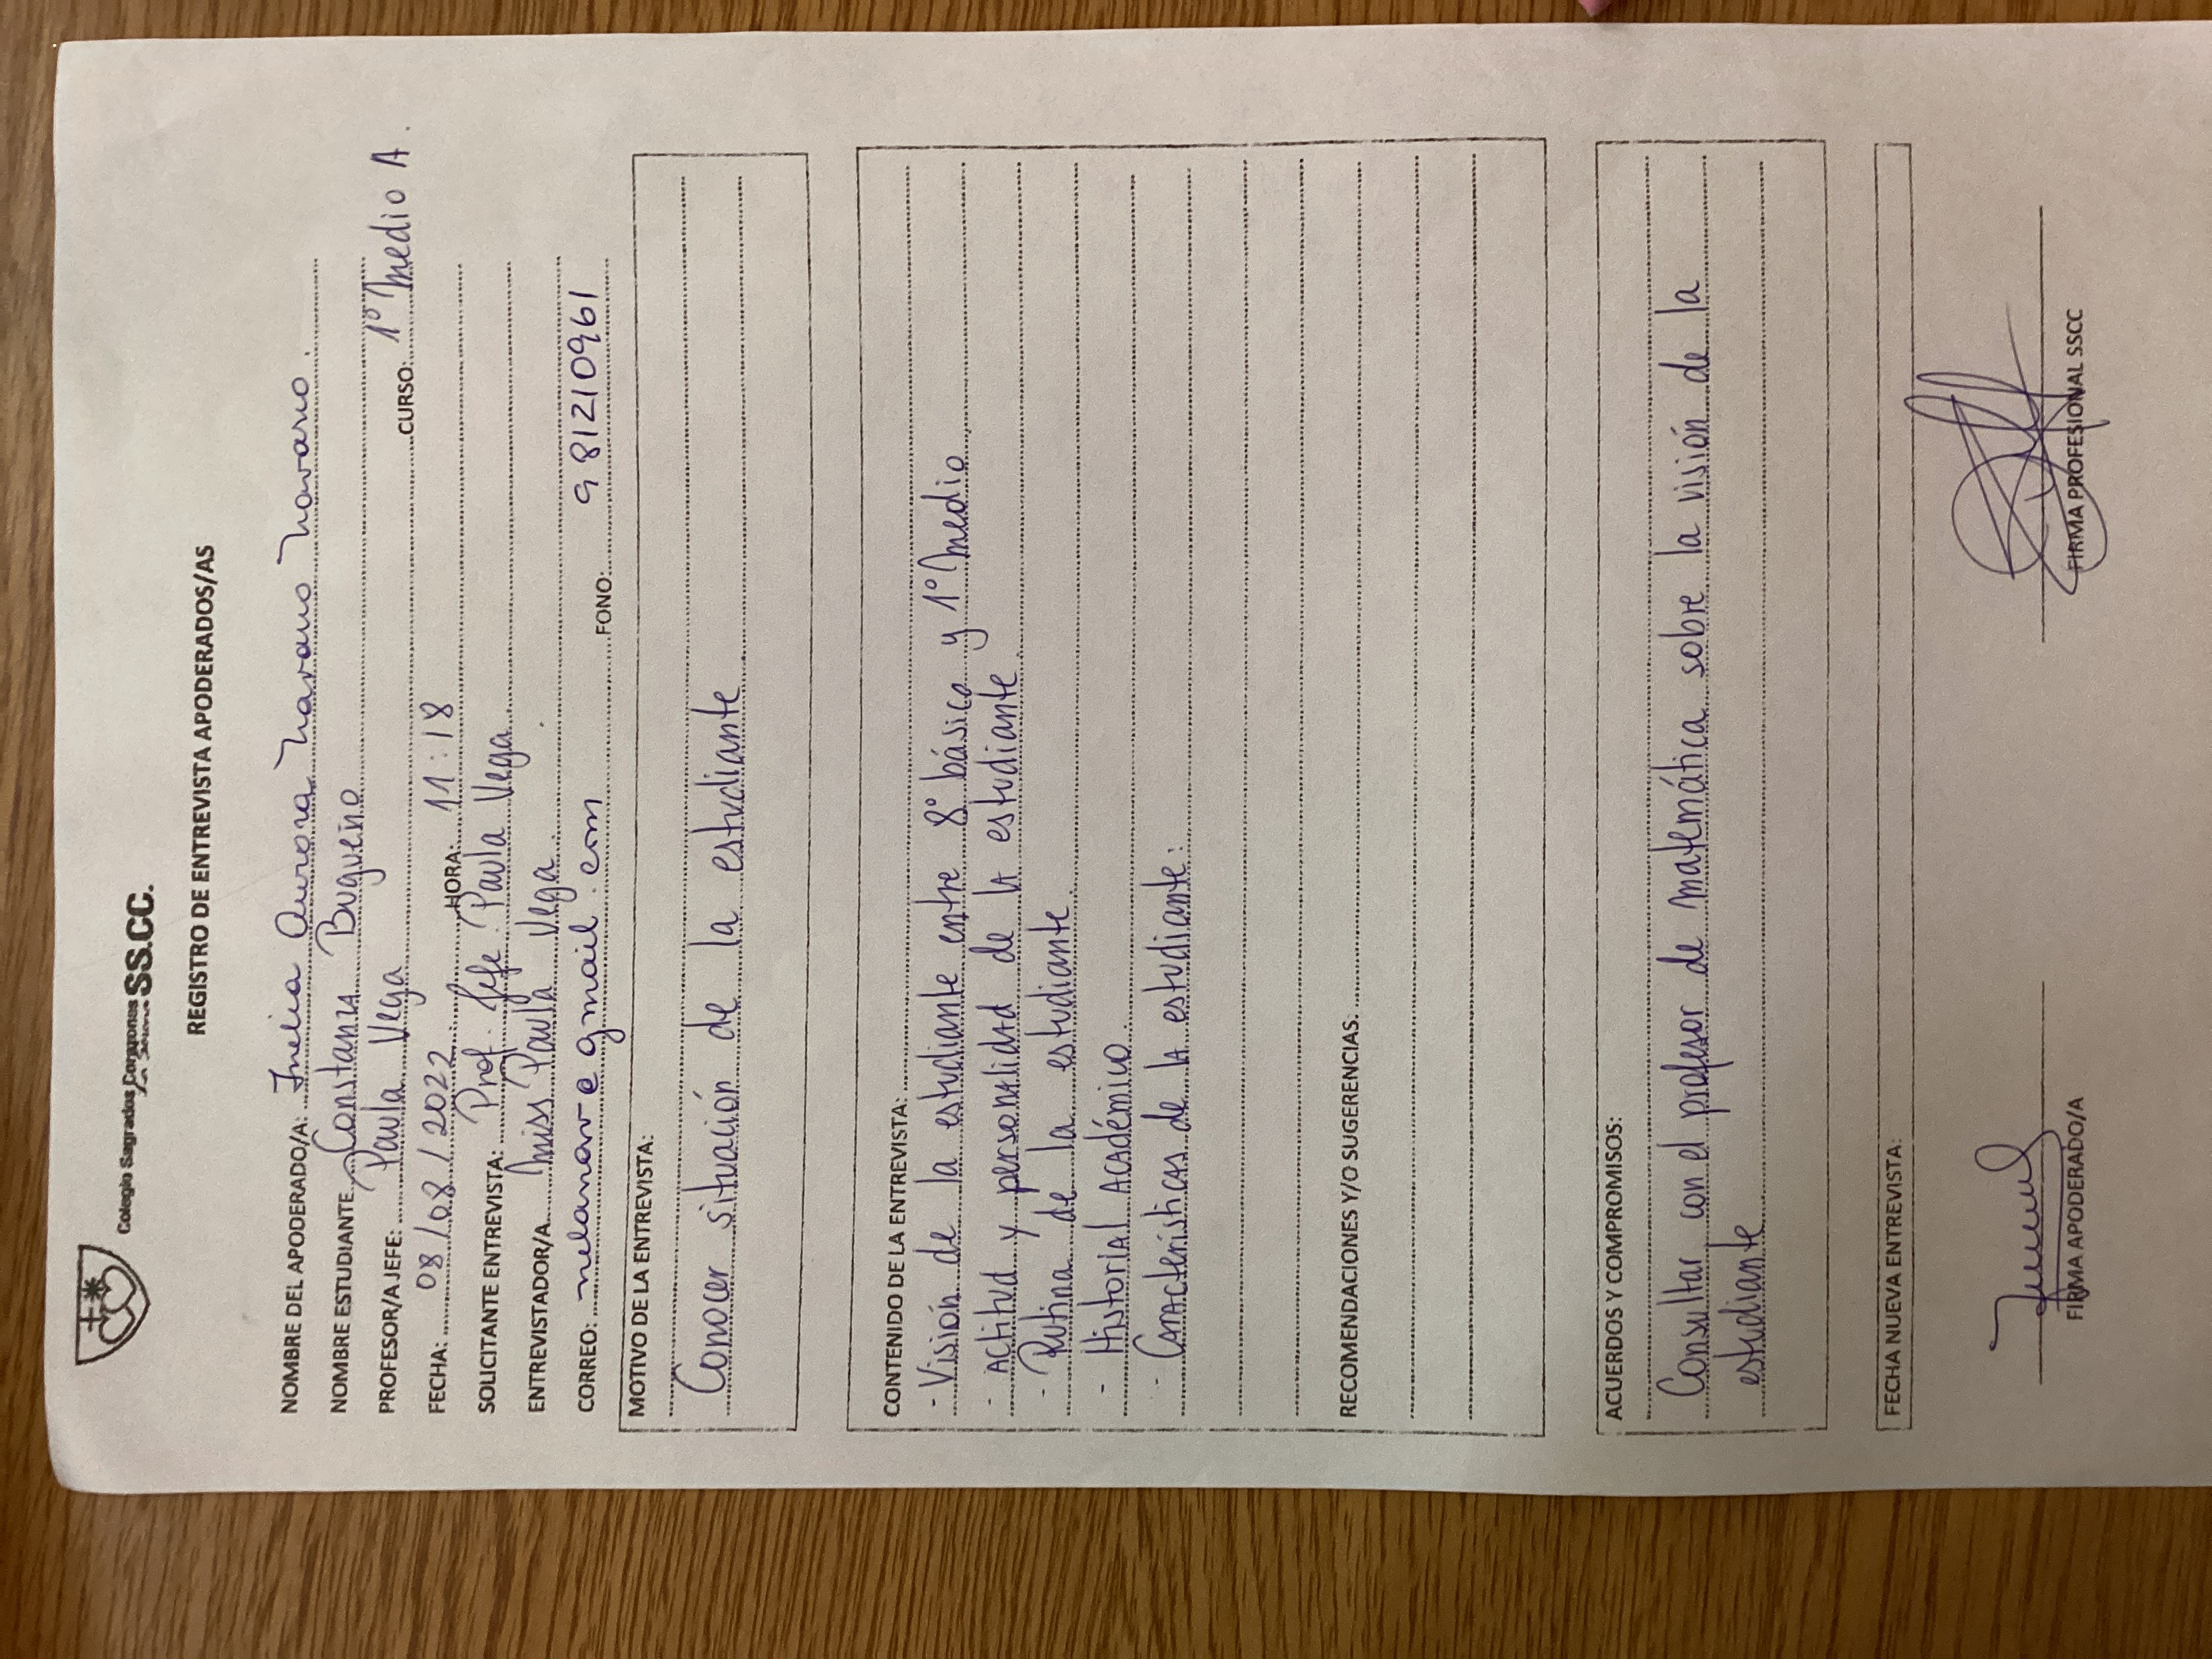 Colegio Sagrados Corazones SS.CC.
REGISTRO DE ENTREVISTA APODERADOS/AS
NOMBRE DEL APODERADO/A: Aurora Navarro Navarro.
NOMBRE ESTUDIANTE Constanza Bugueño
PROFESOR/A JEFE: Paula Vega CURSO: 1° Medio A.
FECHA: 08/08/2022 HORA: 11:18
SOLICITANTE ENTREVISTA: Prof. Jefe Paula Vega
ENTREVISTADOR/A Miss Paula Vega.
CORREO: FONO: 9 81210961
MOTIVO DE LA ENTREVISTA:
Conocer situación de la estudiante
CONTENIDO DE LA ENTREVISTA:
- Visión de la estudiante entre 8° básico y 1° Medio
- Actitud y personalidad de la estudiante
- Rutina de la estudiante
- Historial Académico
- Características de la estudiante:
RECOMENDACIONES Y/O SUGERENCIAS:
ACUERDOS Y COMPROMISOS:
Consultar con el profesor de matemática sobre la visión de la
estudiante
FECHA NUEVA ENTREVISTA:
FIRMA APODERADO/A FIRMA PROFESIONAL SSCC